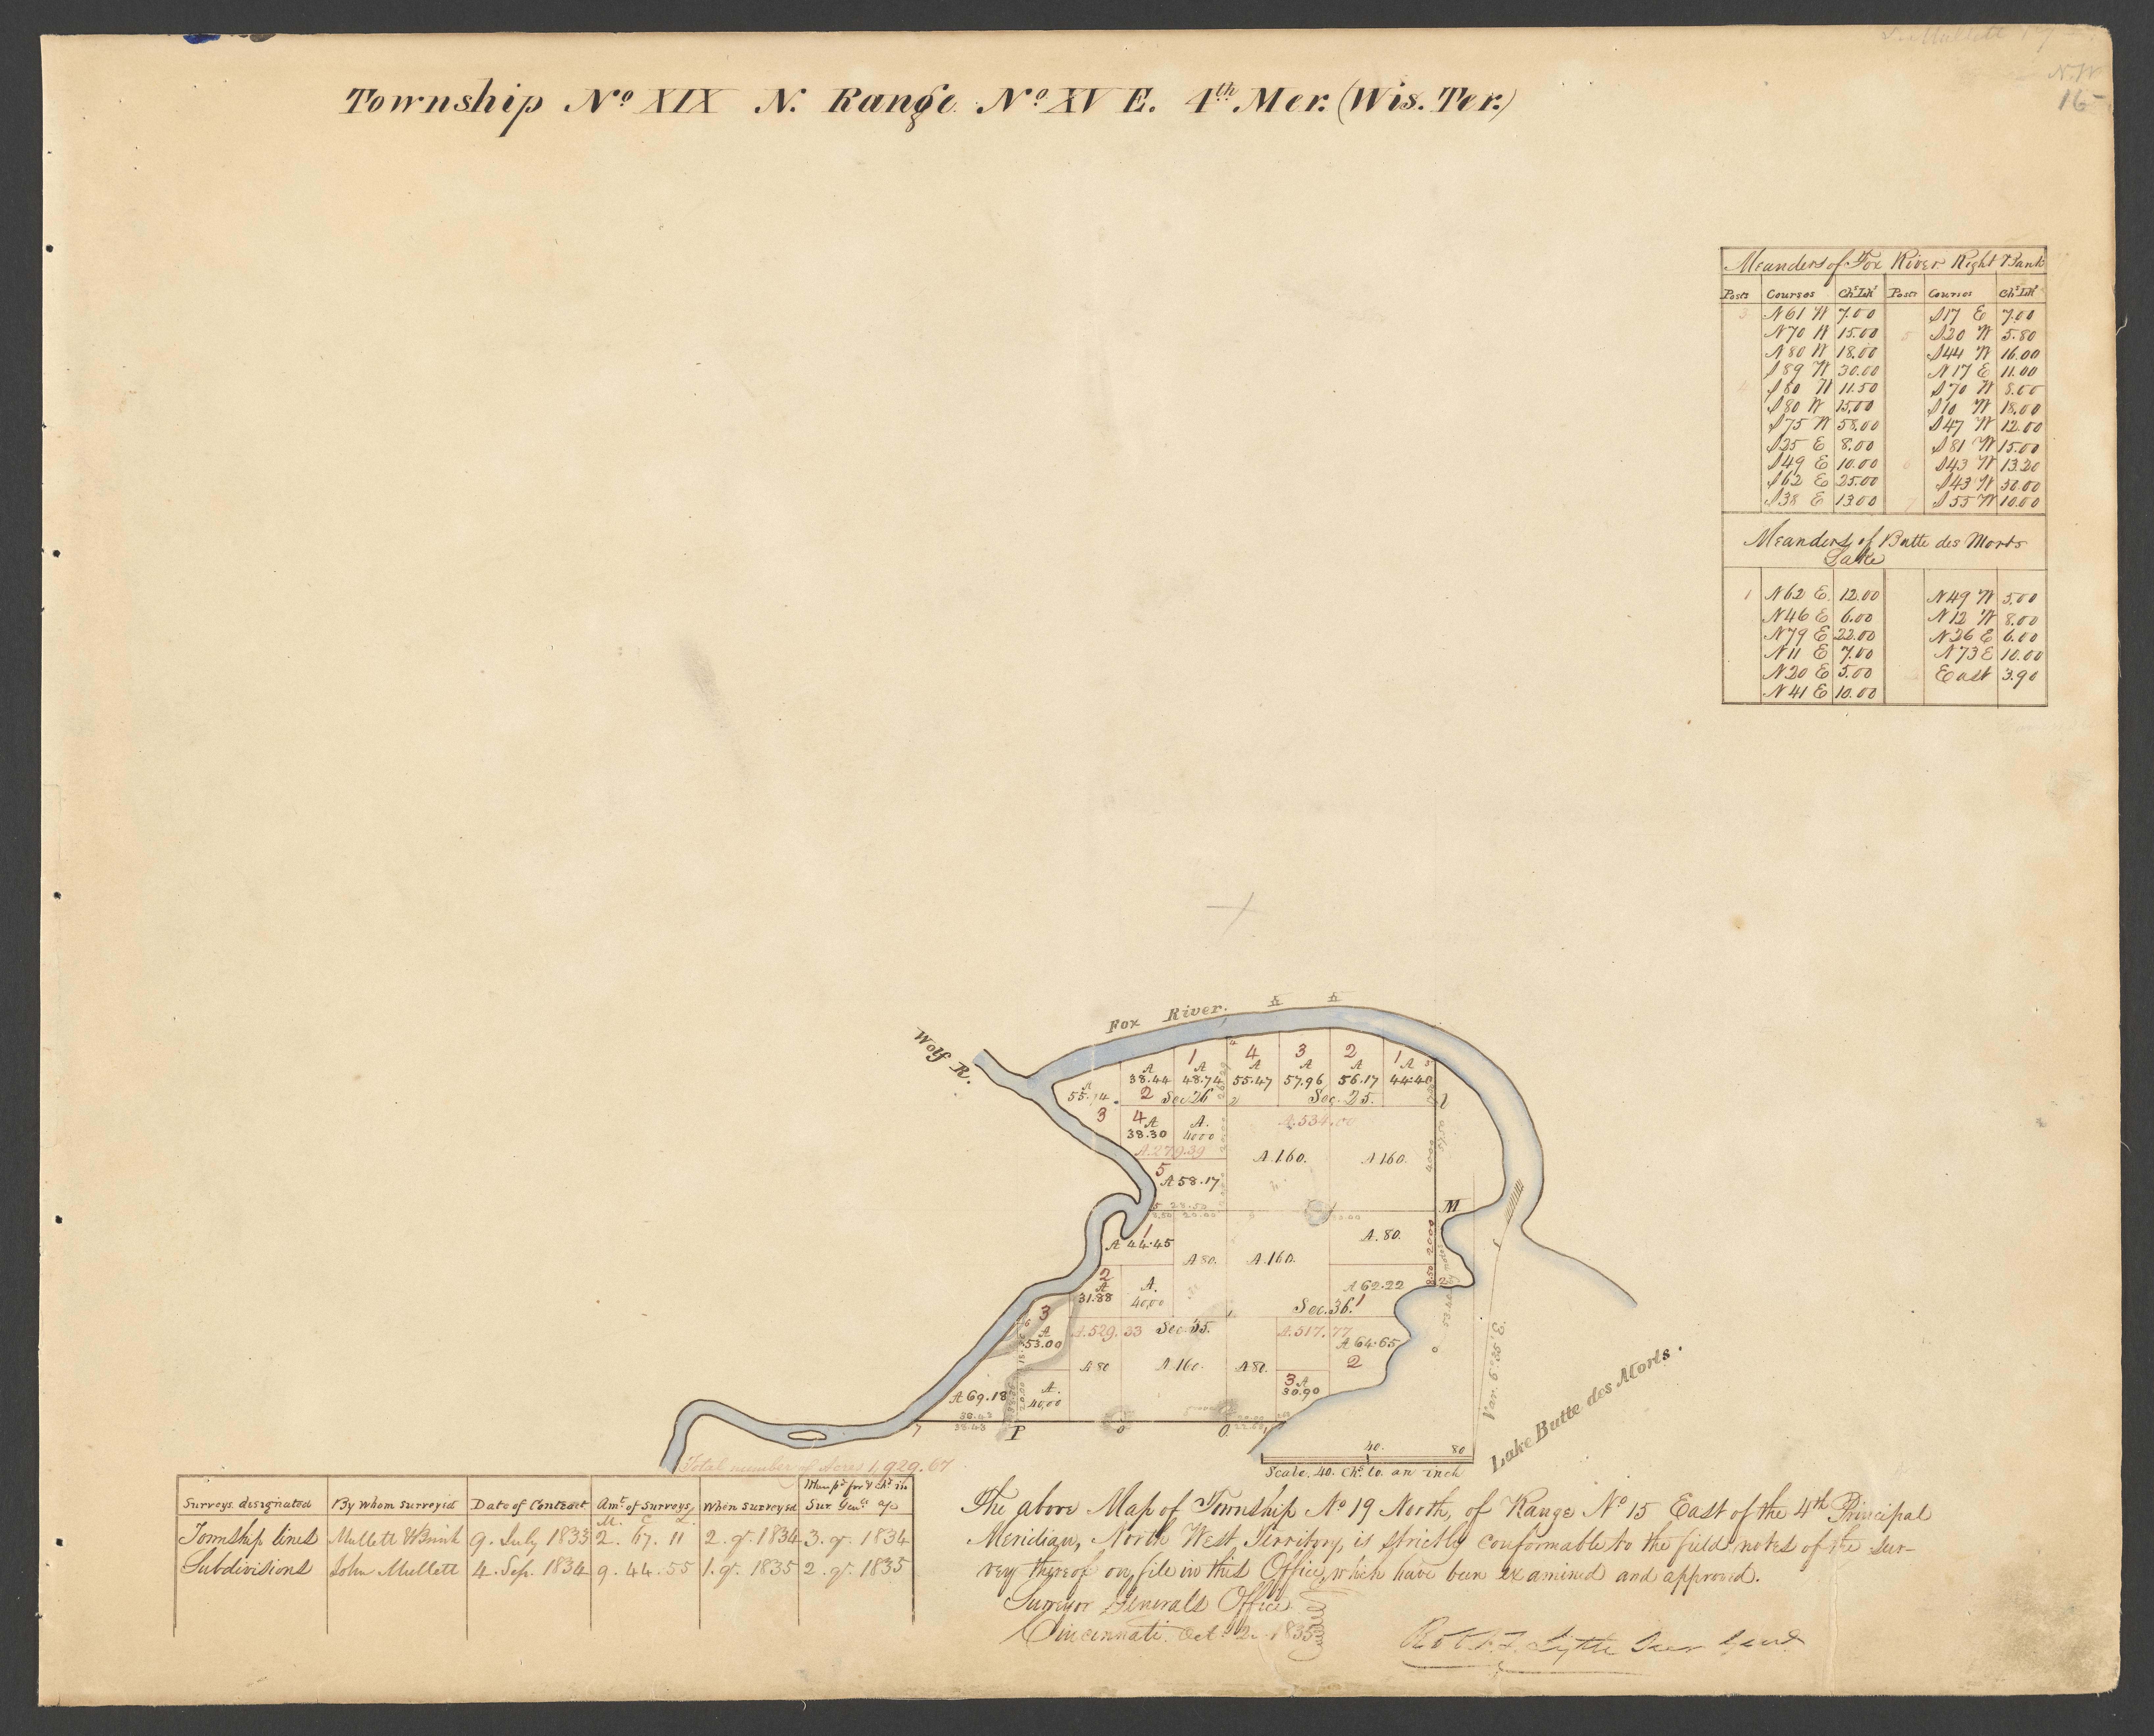 N.W
16
Township No XIX N. Range No XV E. 4th Mer. (Wis. Ter.)
Meanders of Fox River Right Bank
Posts Courses Chs Lks Posts Courses Chs Lks
3 N 61 W 7.00 S 17 E 7.00
N 70 W 15.00 5 S 20 W 5.80
N 80 W 18.00 S 44 W 16.00
S 89 W 30.00 N 17 E 11.00
4 S 80 W 11.50 S 70 W 8.00
S 80 W 15.00 S 10 W 18.00
S 75 W 58.00 S 47 W 12.00
S 25 E 8.00 S 81 W 15.00
S 49 E 10.00 6 S 43 W 13.20
S 62 E 25.00 S 43 W 50.00
S 38 E 13.00 7 S 55 W 10.00
Meanders of Butte des Morts
Lake
1 N 62 E 12.00 N 49 W 5.00
N 46 E 6.00 N 12 W 8.00
N 79 E 22.00 N 26 E 6.00
N 11 E 7.00 N 73 E 10.00
N 20 E 5.00 East 3.90
N 41 E 10.00
Fox River.
Wolf R.
1 4 3 2 1
A A A A A A
38.44 48.74 55.47 57.96 56.17 44.40
A
55.14
2 Sec 26 Sec. 25.
3 4 A A.
38.30 40.00
A.534.00
A.279.39
A.160. A 160.
5
A 58.17
M
1
A 44.45
A.80.
A 80. A.160.
2
A
31.88
A.
40.00
A 62.22
Sec. 36. 1
3
A
53.00
A.529.33 Sec. 35. A.517.77
A 64.65
2
A 80 A 160. A 80.
3 A
30.90
A 69.18
A.
40.00
7 P
Var. 6° 35' E.
Lake Butte des Morts.
40. 80
Scale, 40. Chs. to an inch
Total number of Acres 1,929.67
Surveys designated By whom surveyed Date of Contract Amt. of Surveys When surveyed When pd for & Chd in Sur Genls offe
M. C. L.
Township lines Mullett & Brink 9. July 1833 2. 67. 11 2. qr. 1834 3. qr. 1834
Subdivisions John Mullett 4. Sep. 1834 9. 44. 55 1. qr. 1835 2. qr. 1835
The above Map of Township No 19 North, of Range No 15 East of the 4th Principal
Meridian, North West Territory, is strictly conformable to the field notes of the sur-
vey thereof on file in this Office, which have been examined and approved.
Surveyor Generals Office
Cincinnati. Oct. 2. 1835
Robt. T. Lytle Sur Genl.